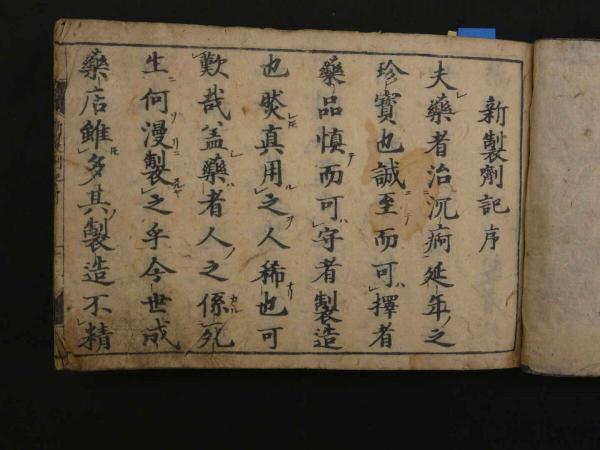 新製劑記序
夫藥者治沉痾延年之
珍寶也誠至而可擇者
藥品慎而可守者製造
也然真用之人稀也可
歎哉盖藥者人之係死
生何漫製之乎今世成
藥店雖多其製造不精